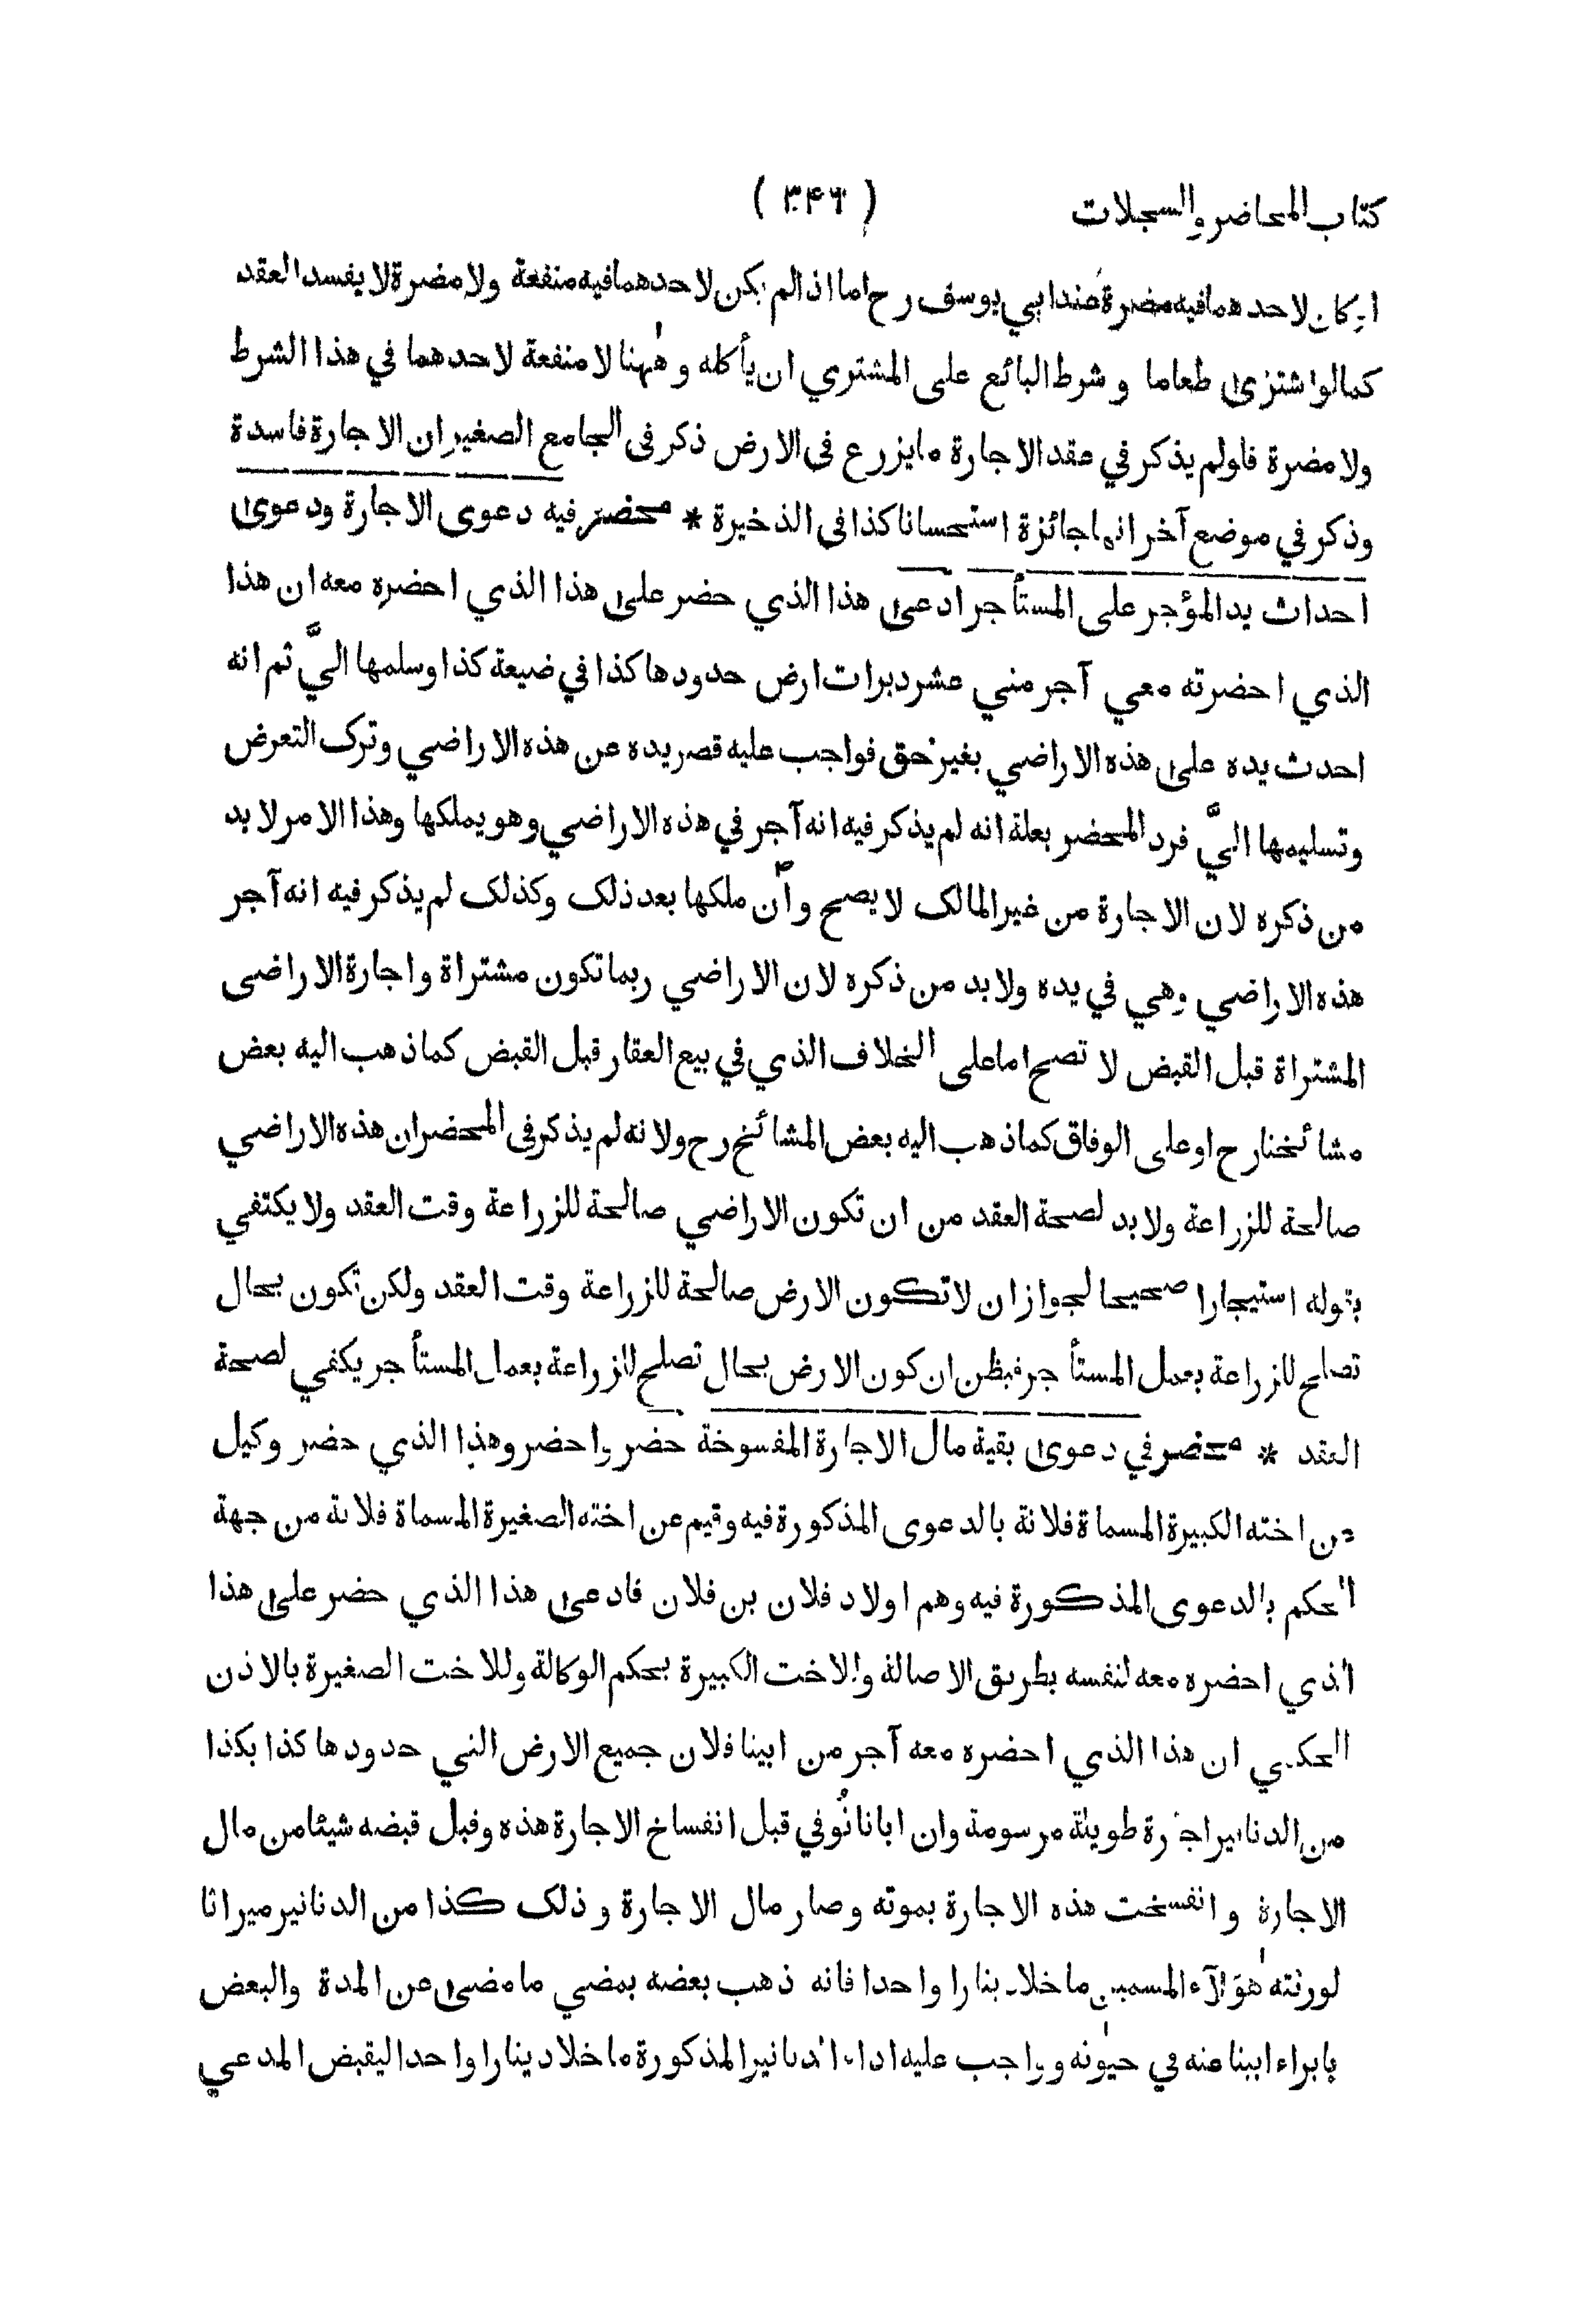 كتاب المحاضر والسجلات
( ٣۴٦ )
او كان لاحدهما فيه مضرة عند ابي يوسف رح اما اذا لم يكن لاحدهما فيه منفعة ولا مضرة لا يفسد العقد
كما لو اشترى طعاما وشرط البائع على المشتري ان يأكله وههنا لا منفعة لاحدهما في هذا الشرط
ولا مضرة فلو لم يذكر في عقد الاجارة ما يزرع في الارض ذكر في الجامع الصغير ان الاجارة فاسدة
وذكر في موضع آخر انها جائزة استحسانا كذا في الذخيرة * محضر فيه دعوى الاجارة ودعوى
احداث يد المؤجر على المستأجر ادعى هذا الذي حضر على هذا الذي احضره معه ان هذا
الذي احضرته معي آجر مني عشر دبرات ارض حدودها كذا في ضيعة كذا وسلمها اليَّ ثم انه
احدث يده على هذه الاراضي بغير حق فواجب عليه قصر يده عن هذه الاراضي وترك التعرض
وتسليمها اليَّ فرد المحضر بعلة انه لم يذكر فيه انه آجر في هذه الاراضي وهو يملكها وهذا الامر لا بد
من ذكره لان الاجارة من غير المالك لا يصح وان ملكها بعد ذلك وكذلك لم يذكر فيه انه آجر
هذه الاراضي وهي في يده ولا بد من ذكره لان الاراضي ربما تكون مشتراة واجارة الاراضي
المشتراة قبل القبض لا تصح اما على الخلاف الذي في بيع العقار قبل القبض كما ذهب اليه بعض
مشائخنا رح او على الوفاق كما ذهب اليه بعض المشائخ رح ولانه لم يذكر في المحضر ان هذه الاراضي
صالحة للزراعة ولا بد لصحة العقد من ان تكون الاراضي صالحة للزراعة وقت العقد ولا يكتفي
بقوله استيجارا صحيحا لجواز ان لا تكون الارض صالحة للزراعة وقت العقد ولكن تكون بحال
تصلح للزراعة بعمل المستأجر فيظن ان كون الارض بحال تصلح للزراعة بعمل المستأجر يكفي لصحة
العقد * محضر في دعوى بقية مال الاجارة المفسوخة حضر واحضر وهذا الذي حضر وكيل
من اخته الكبيرة المسماة فلانة بالدعوى المذكورة فيه وقيم عن اخته الصغيرة المسماة فلانة من جهة
الحكم بالدعوى المذكورة فيه وهم اولاد فلان بن فلان فادعى هذا الذي حضر على هذا
الذي احضره معه لنفسه بطريق الاصالة ولاخت الكبيرة بحكم الوكالة وللاخت الصغيرة بالاذن
الحكمي ان هذا الذي احضره معه آجر من ابينا فلان جميع الارض التي حدودها كذا بكذا
من الدنانير اجارة طويلة مرسومة وان ابانا تُوفي قبل انفساخ الاجارة هذه وقبل قبضه شيئا من مال
الاجارة وانفسخت هذه الاجارة بموته وصار مال الاجارة وذلك كذا من الدنانير ميراثا
لورثته هؤلآء المسمين ما خلا دينارا واحدا فانه ذهب بعضه بمضي ما مضى من المدة والبعض
بابراء ابينا عنه في حيوته وواجب عليه اداء الدنانير المذكورة ما خلا دينارا واحدا ليقبض المدعي